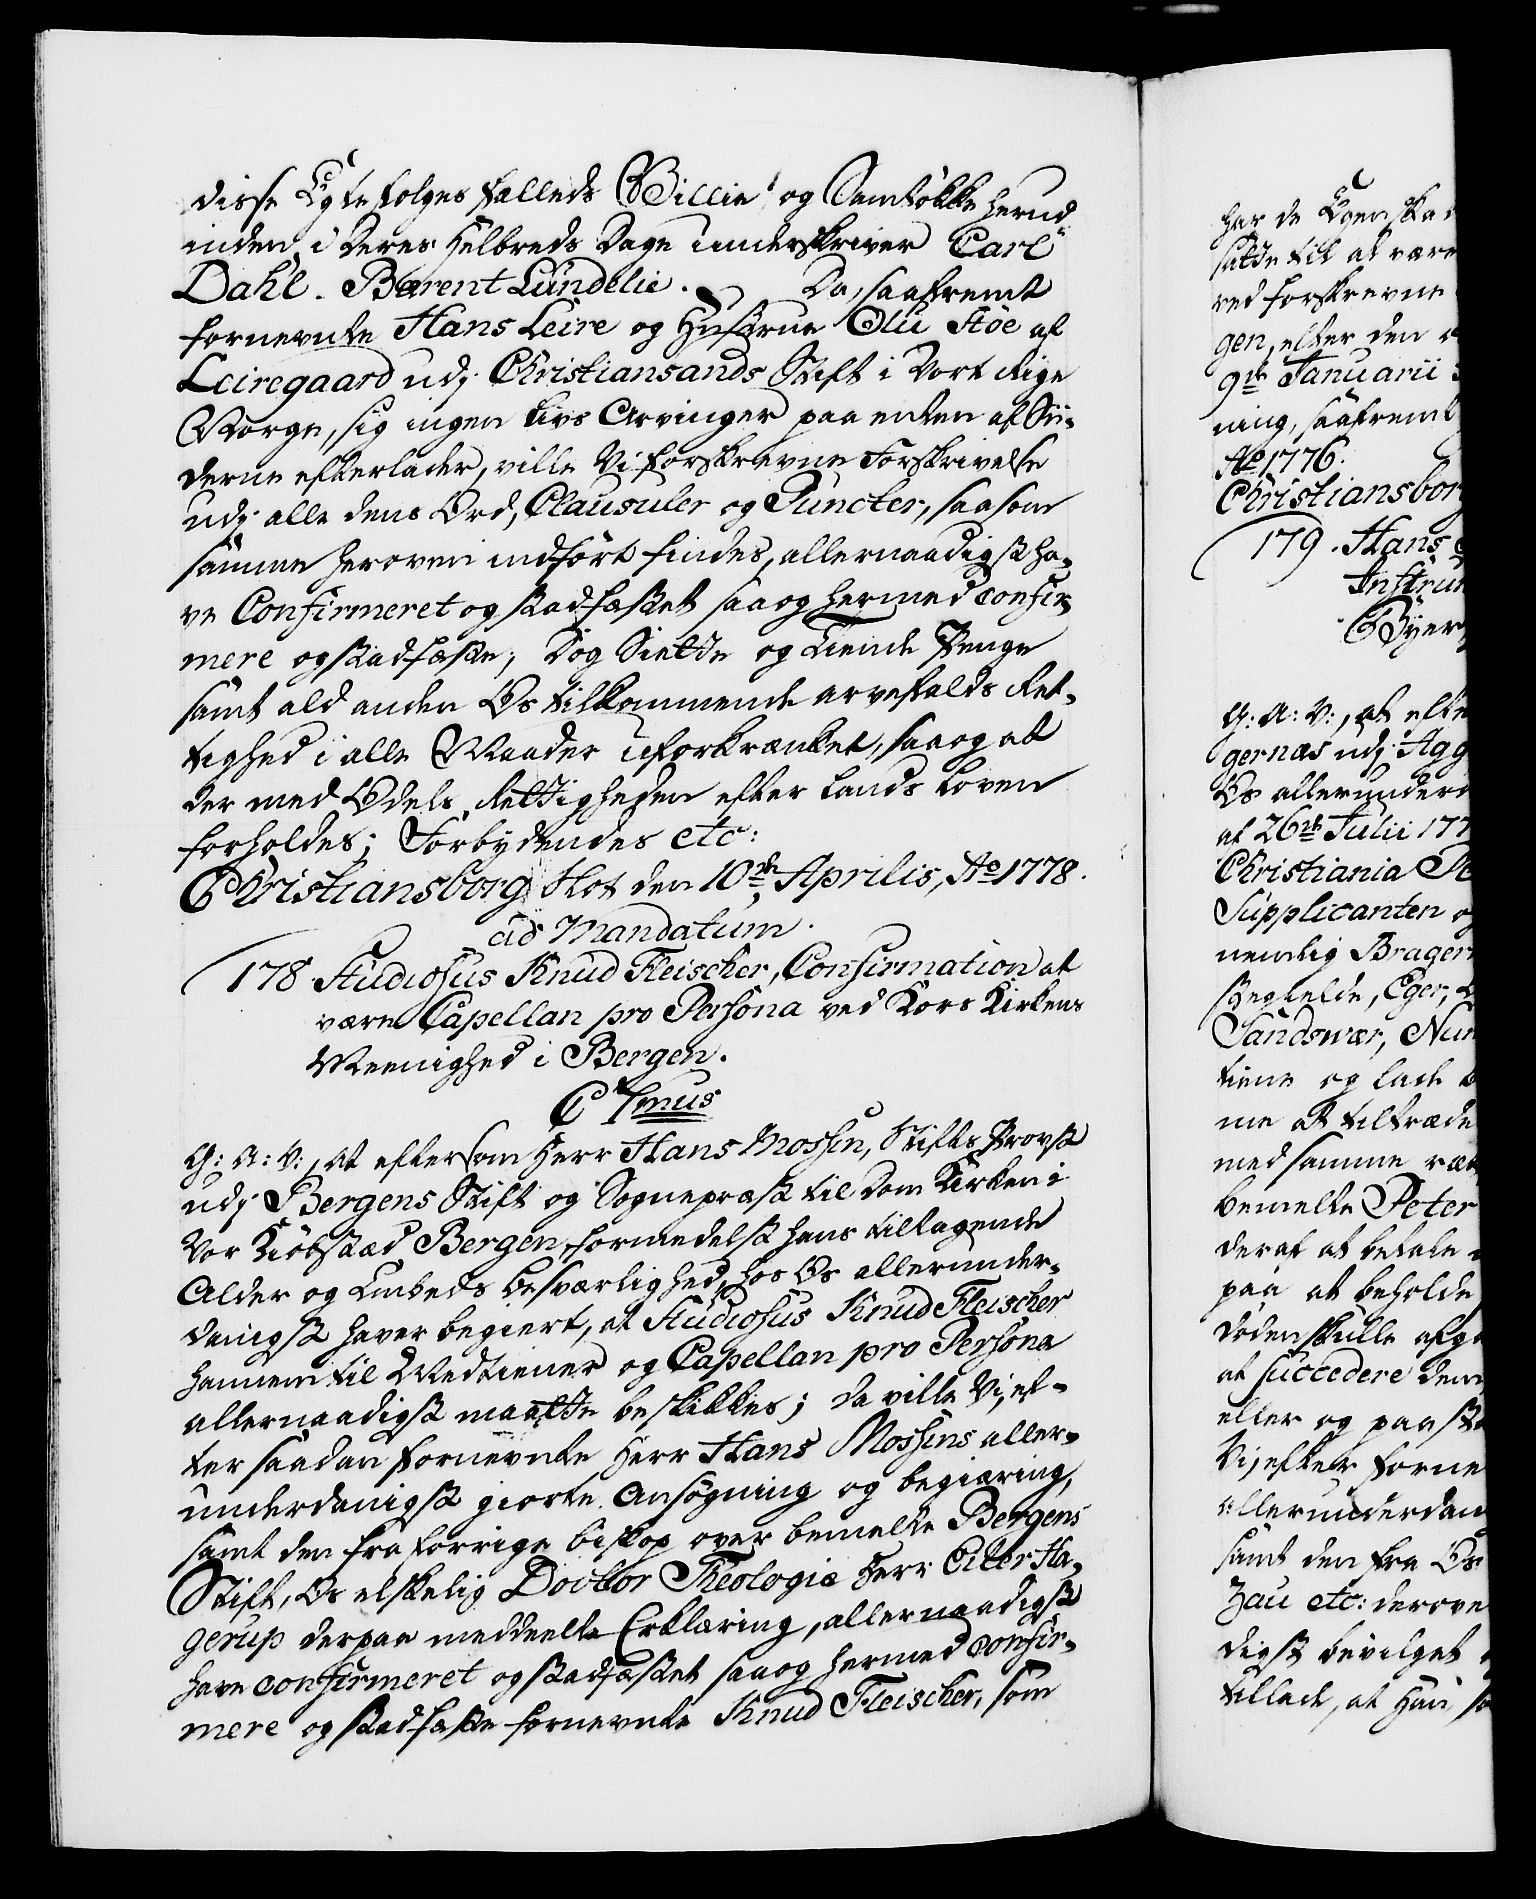 disse Egtefolges fælleds Villie og Samtøkke herud
inden i deres Helbreds Dage underskriver Carl
Dahl. Bærent Lündelie. Da, saafremt
fornevnte Hans Leire og Hustrue Olü Stöe af
Leiregaard udj Christiansands Stift i Vort Rige
Norge, sig ingen Livs Arvinger paa enden af Sii-
derne efterlader, ville Vi forskrevne Forskrivelse
udj alle dens Ord, Clausuler og Püncter, saasom
samme heroven indført findes, allernaadigst ha-
ve Confirmeret og stadfæstet saa og hermed confir-
mere og stadfæste; Dog Siette og Tiende Penge
samt ald anden Os tilkommende arvefalds Ret-
tighed i alle Maader uforkrænket, saa og at
der med Odels Rettigheden efter Lands Loven
forholdes; Forbydendes etc:
Christiansborg Slot den 10de Aprilis, Ao 1778.
ad Mandatum.
178 Studiosus Knud Fleischer, Confirmation at
være Capellan pro Persona ved Kors Kirkens
Meenighed i Bergen.
C 7mus
G: A: V:, at eftersom Herr Hans Mossin, Stifts Provst
udj Bergens Stift og Sognepræst til Dom Kirken i
Vor Kiöbstæd Bergen, formedelst hans tiltagende
Alder og Embeds besværlighed, hos Os allerunder-
danigst haver begiert, at Studiosus Knud Fleischer
hannem til Medtiener og Capellan pro Persona
allernaadigst maatte beskikkes; da ville Vi, ef-
ter saadan fornevnte Herr Hans Mossins aller-
underdanigst giorte Ansøgning og begiæring,
samt den fra forrige biskop over bemelte Bergens
Stift, Os elskelig Doctor Theologiæ Herr Eiler Ha-
gerup derpaa meddeelte Erklæring, allernaadigst
have confirmeret og stadfæstet saa og hermed confir-
mere og stadfæste fornevnte Knud Fleischer, som
har de
satte til at være
ved forskrevne
gen, efter den
9de Januarii
ning, saafremt
Ao 1776.
Christiansborg
179. Hans
Instru
Byer
G: A: V:, at efter
gernæs udj Agg
Os allerunder
af 26de Julii 177
Christiania
Supplicanten og
nemlig Brager
Eger,
Sandsvær, Num
tiene og lade
me at tiltræde
med samme ræt
bemelte Peter
deraf at betale
paa at beholde
döden skulle afga
at succedere dem
eller og paa
Vi, efter forne
allerunderdan
samt den fra Os
Zau etc: derove
digst bevilget
tillade, at Han